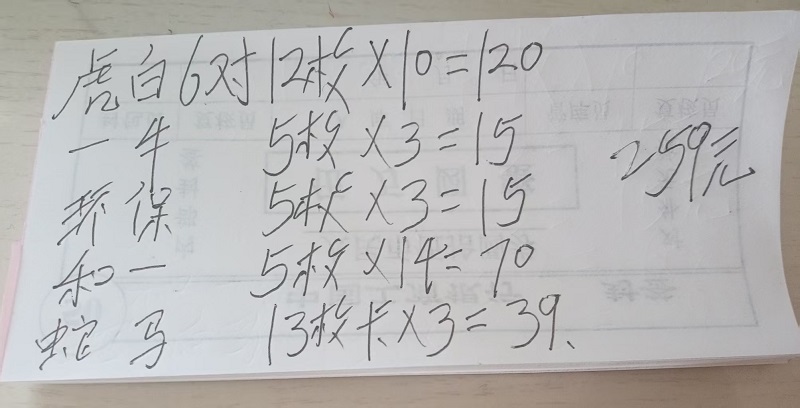 虎白6对12枚×10=120
一牛 5枚×3=15
259元
环保 5枚×3=15
和一 5枚×14=70
蛇马 13枚卡×3=39、